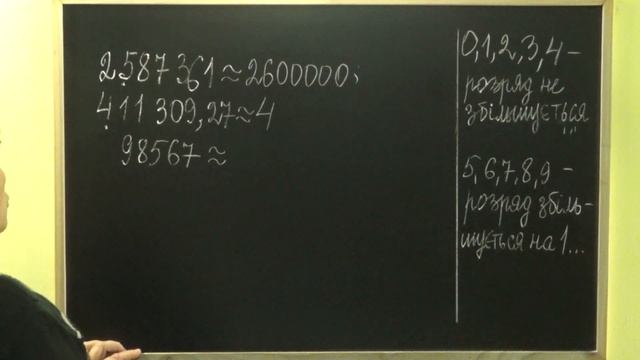 2587361≈2600000;
411 309,27≈4
98567≈
0,1,2,3,4–
розряд не
збільшується
5,6,7,8,9 –
розряд збіль-
шується на 1...